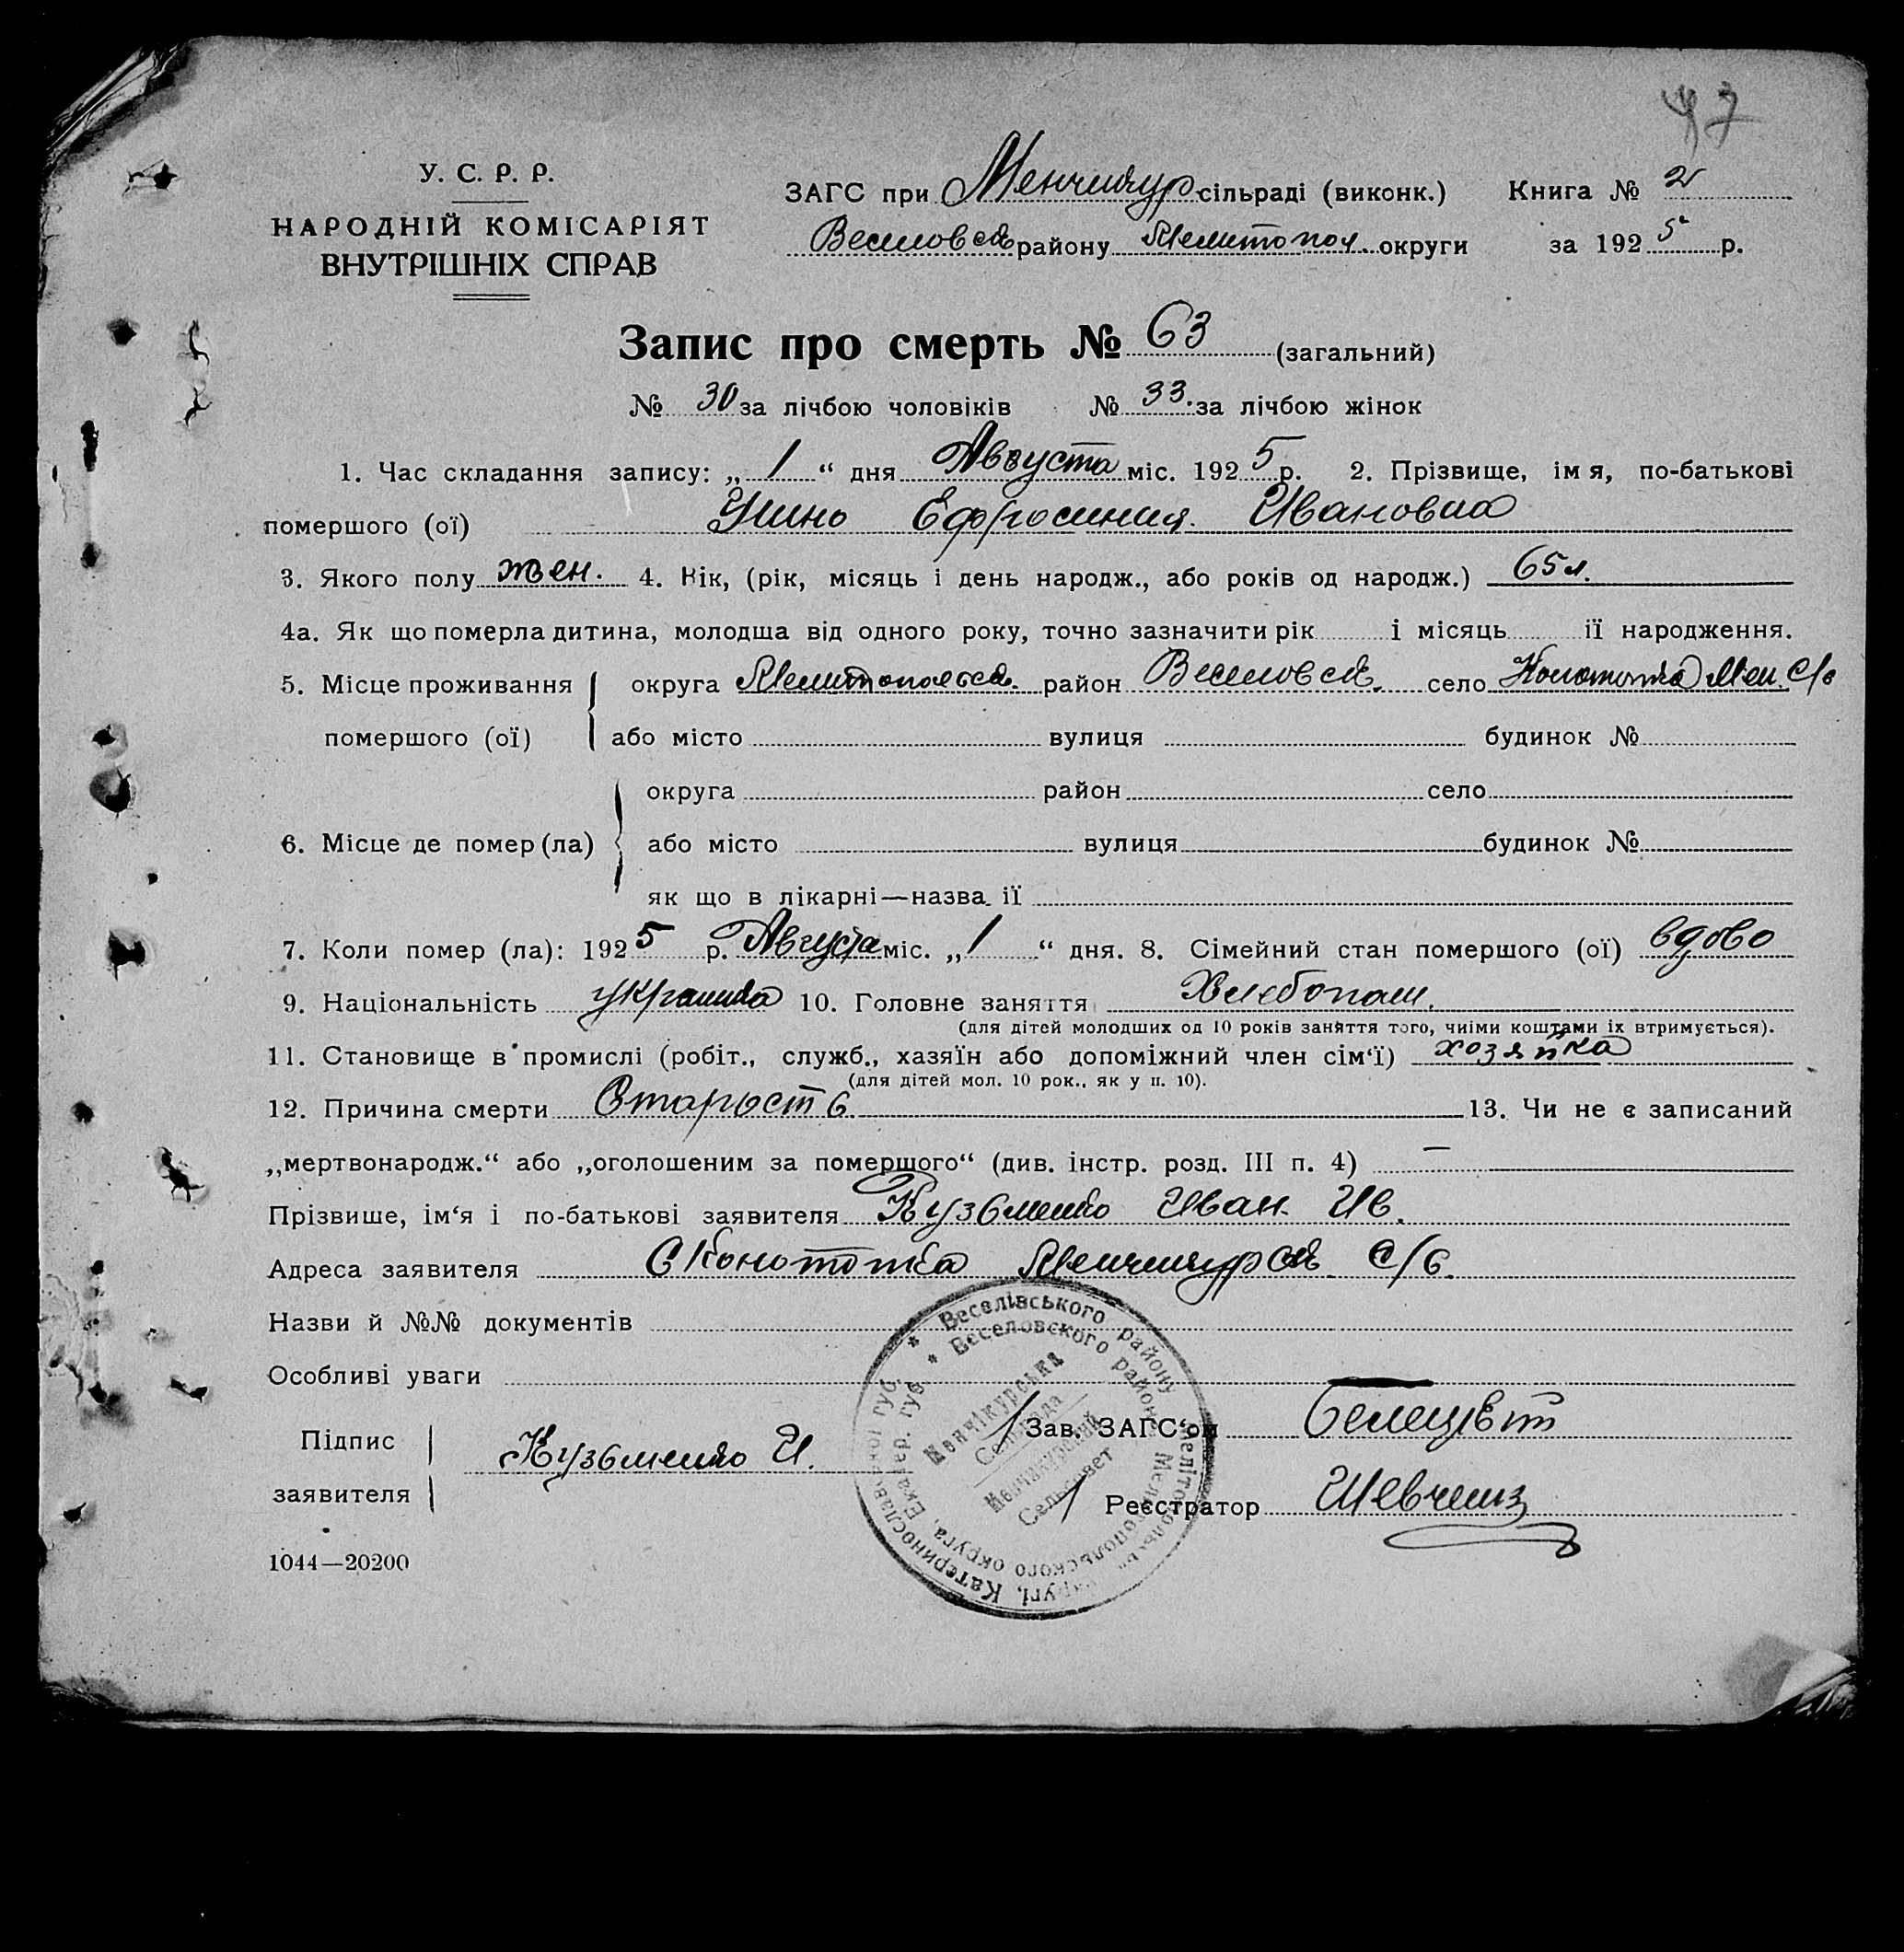 47
У. С. Р. Р.
НАРОДНІЙ КОМІСАРІЯТ
ВНУТРІШНІХ СПРАВ
ЗАГС при Менчикур. сільраді (виконк.) Книга № 2
Веселовск. району Мелитопол. округи за 1925 р.
Запис про смерть № 63 (загальний)
№ 30 за лічбою чоловіків № 33. за лічбою жінок
1. Час складання запису: „ 1 “ дня Августа міс. 1925 р. 2. Прізвище, імя, по-батькові
помершого (ої) Ефросиния Ивановна
3. Якого полу жен. 4. Вік, (рік, місяць і день народж., або років од народж.) 65 л.
4а. Як що померла дитина, молодша від одного року, точно зазначити рік і місяць її народження.
5. Місце проживання округа Мелитопольск. район Веселовск. село Конотопка Мен. С/с
помершого (ої) або місто вулиця будинок №
округа район село
6. Місце де помер (ла) або місто вулиця будинок №
як що в лікарні—назва її
7. Коли помер (ла): 1925 р. Августа міс. „ 1 “ дня. 8. Сімейний стан помершого (ої) вдова
9. Національність украинка 10. Головне заняття Хлебопаш.
(для дітей молодших од 10 років заняття того, чиїми коштами їх втримується).
11. Становище в промислі (робіт., служб., хазяїн або допоміжний член сім‘ї) хозяйка
(для дітей мол. 10 рок., як у п. 10).
12. Причина смерти Старость 13. Чи не є записаний
„мертвонародж.“ або „оголошеним за помершого“ (див. інстр. розд. III п. 4) —
Прізвише, ім‘я і по-батькові заявителя Кузьменко Иван Ив.
Адреса заявителя С Конотопка Менчикурск. С/С.
Назви й №№ документів
Особливі уваги
Підпис
заявителя
Кузьменко И.
Зав. ЗАГС‘ом
Реєстратор
* Веселівського району Мелітопольської округи, Катеринославської губ.
* Веселовского района Мелитопольского округа, Екатер. губ.
Менчікурська
Сельрада
Менчикурский
Сельсовет
1044—20200